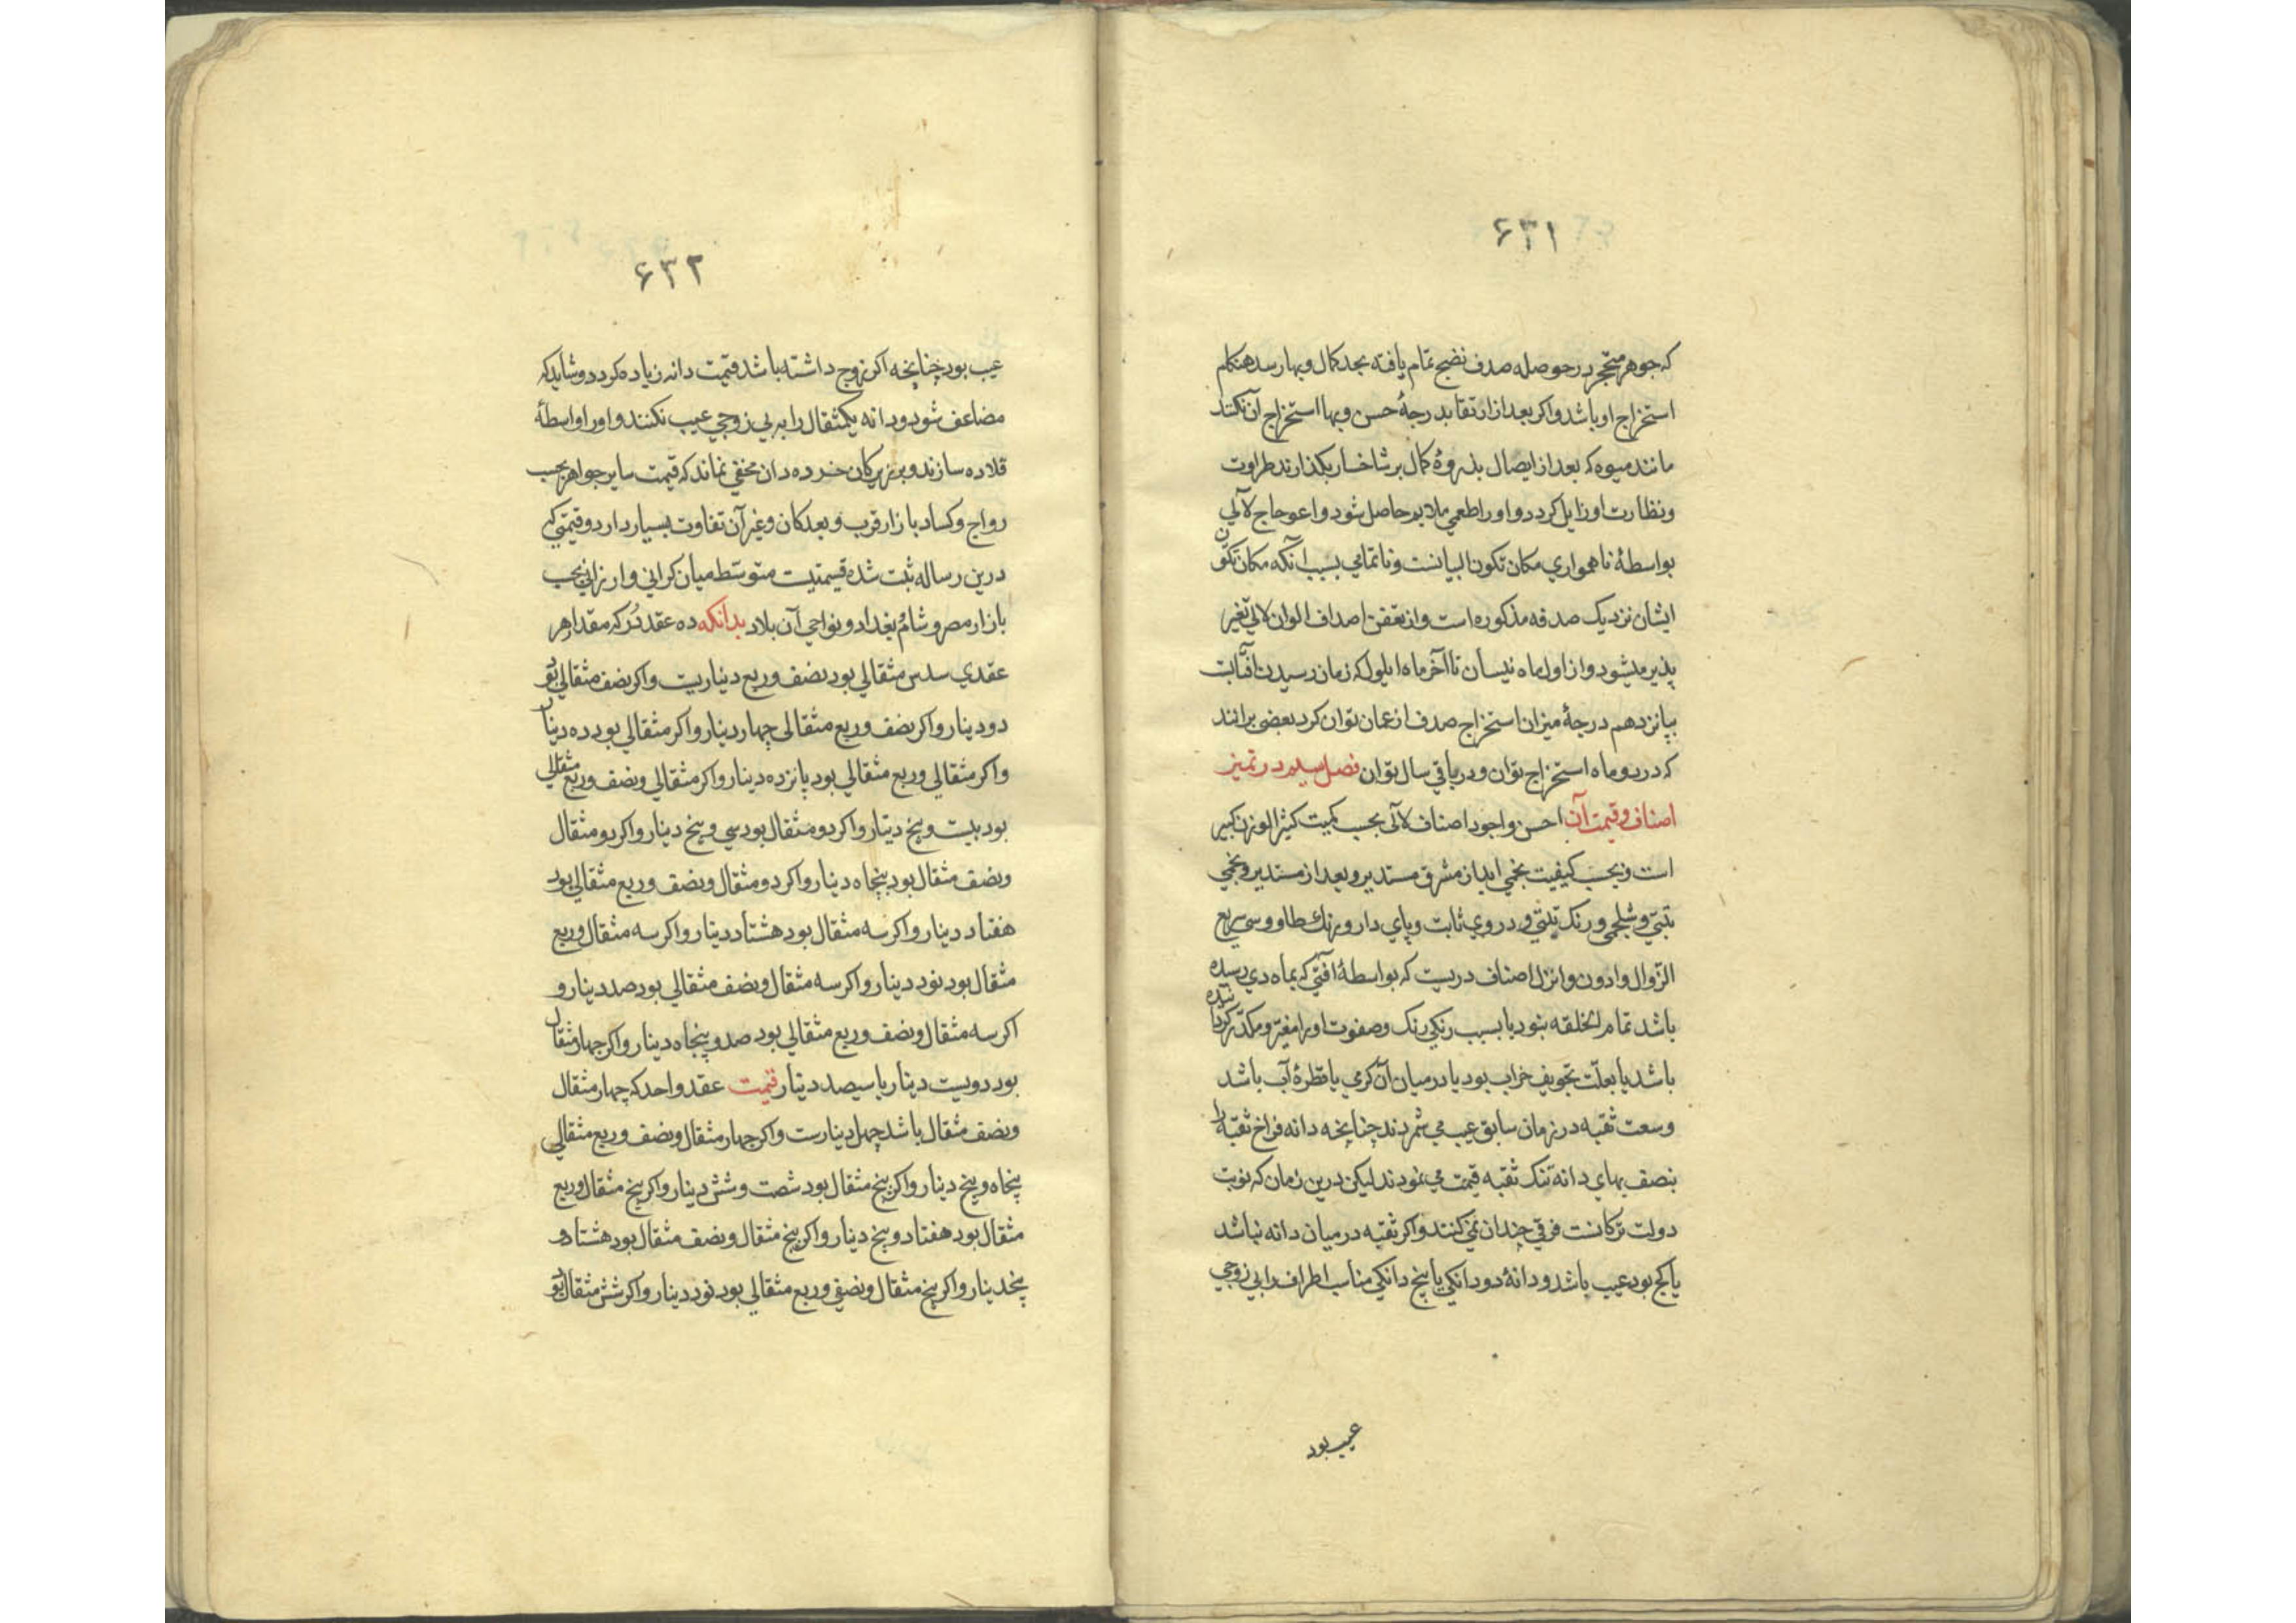 ۶۳۱
که جوهر متحجر در حوصله صدف نضج تمام یافته بحد کمال و بها رسد هنکام
استخراج او باشد و اکر بعد از ارتقا بدرجهٔ حسن و بها استخراج آن نکنند
مانند میوه که بعد از ایصال بذروهٔ کمال بر شاخسار بکذارند طراوت
ونظارت او زایل کردد و او را طعمی ملایم حاصل شود و اعوجاج لآلی
بواسطهٔ ناهمواری مکان تکون البیانست و ناتمامی بسبب آنکه مکان تکون
ایشان نزدیک صدفه مذکوره است و از تعفن اصداف الوان لالی تغیر
پذیر میشود و از اول ماه نیسان تا آخر ماه ایلول که زمان رسیدن آفتابت
بپانزدهم درجهٔ میزان استخراج صدف از عمان توان کرد بعضی برانند
که در دو ماه استخراج توان و در باقی سال توان فصل سیم در تمیز
اصناف و قیمت آن احسن و اجود اصناف لآلی بحسب کمیت کثیر الوزن کبیر
است و بحسب کیفیت نجمی ابدار مشرق مستدیر و بعد از مستدیر و نجمی
تبتی و شلجمی و رنک تبتی و دروی ثابت و پای دار و رنك طاووسی سریع
الزوال وادون وانزل اصناف دریست که بواسطهٔ آفتی که بماه دی رسیده
باشد تمام الخلقه نبود یا بسبب رنکی رنک و صفوت او را مغیر و مکدر کردانیده
باشد یا بعلت تجویف خراب بود یا درمیان آن کرمی یا قطرهٔ آب باشد
وسعت ثقبه در زمان سابق عیب می شمردند چنانچه دانه فراخ ثقبه را
بنصف بهای دانه تنک ثقبه قیمت می نمودند لیکن درین زمان که نوبت
دولت ترکانست فرقی چندان نمی کنند و اکر ثقبه درمیان دانه نباشد
یا کج بود عیب باشد و دانهٔ دو دانکی یا پنج دانکی مناسب اطراف را بی زوجی
عیب بود
۶۳۲
عیب بود چنانچه اکر زوج داشته باشد قیمت دانه زیاده کردد و شاید که
مضاعف شود و دانه یکمثقال را به بی زوجی عیب نکنند و او را واسطهٔ
قلاده سازند و بر زیرکان خرده دان مخفی نماند که قیمت سایر جواهر بحسب
رواج و کساد بازار قرب و بعد کان و غیر آن تفاوت بسیار دارد و قیمتی که
درین رساله ثبت شده قیمتیست متوسط میان کرانی و ارزانی بحسب
بازار مصر و شام و بغداد و نواحی آن بلاد بدانکه ده عقد دُر که مقدار هر
عقدی سدس مثقالی بود نصف و ربع دیناریست و اکر نصف مثقالی بود
دو دینار و اکر نصف و ربع مثقالی چهار دینار و اکر مثقالی بود ده دینار
واکر مثقالی و ربع مثقالی بود پانزده دینار و اکر مثقالی و نصف و ربع مثقالی
بود بیست و پنج دینار و اکر دو مثقال بود سی و پنج دینار و اکر دو مثقال
ونصف مثقال بود پنجاه دینار و اکر دو مثقال و نصف و ربع مثقالی بود
هفتاد دینار و اکر سه مثقال بود هشتاد دینار و اکر سه مثقال و ربع
مثقال بود نود دینار و اکر سه مثقال و نصف مثقالی بود صد دینار و
اکر سه مثقال و نصف و ربع مثقالی بود صد و پنجاه دینار و اکر چهار مثقال
بود دویست دینار یا سیصد دینار قیمت عقد واحد که چهار مثقال
ونصف مثقال باشد چهل دینارست و اکر چهار مثقال و نصف و ربع مثقالی
پنجاه و پنج دینار و اکر پنج مثقال بود شصت و شش دینار و اکر پنج مثقال و ربع
مثقال بود هفتاد و پنج دینار و اکر پنج مثقال و نصف مثقال بود هشتاد و
پنجدینار و اکر پنج مثقال و نصفی و ربع مثقالی بود نود دینار و اکر شش مثقال بود